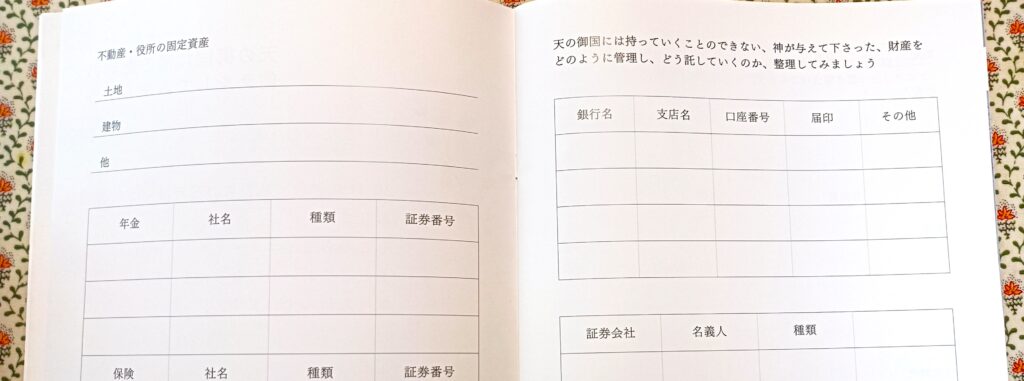 不動産・役所の固定資産
土地
建物
他
年金 社名 種類 証券番号
保険 社名 種類 証券番号
天の御国には持っていくことのできない、神が与えて下さった、財産を
どのように管理し、どう託していくのか、整理してみましょう
銀行名 支店名 口座番号 届印 その他
証券会社 名義人 種類